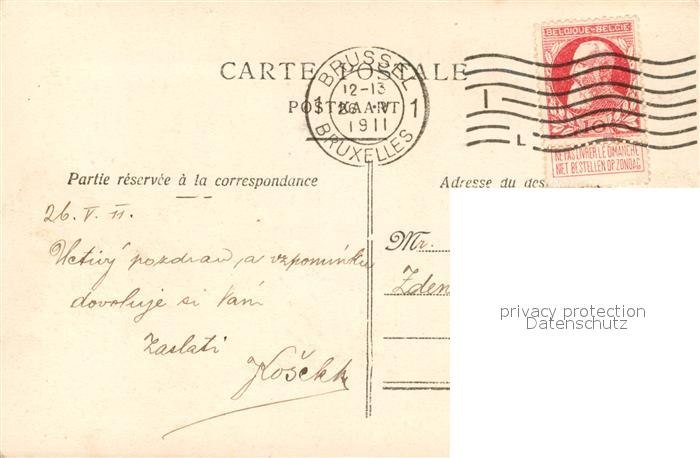 CARTE POSTALE
POSTKAART
BRUSSEL
12-13
1 26 V 1
1911
BRUXELLES
BELGIQUE-BELGIE
10
NE PAS LIVRER LE DIMANCHE
NIET BESTELLEN OP ZONDAG
I
L
Partie réservée à la correspondance
Adresse du des
26. V. 11.
Uctivý pozdrav, a vzpomínku
dovoluje si Vám
zaslati
Mr.
Zden
privacy protection
Datenschutz